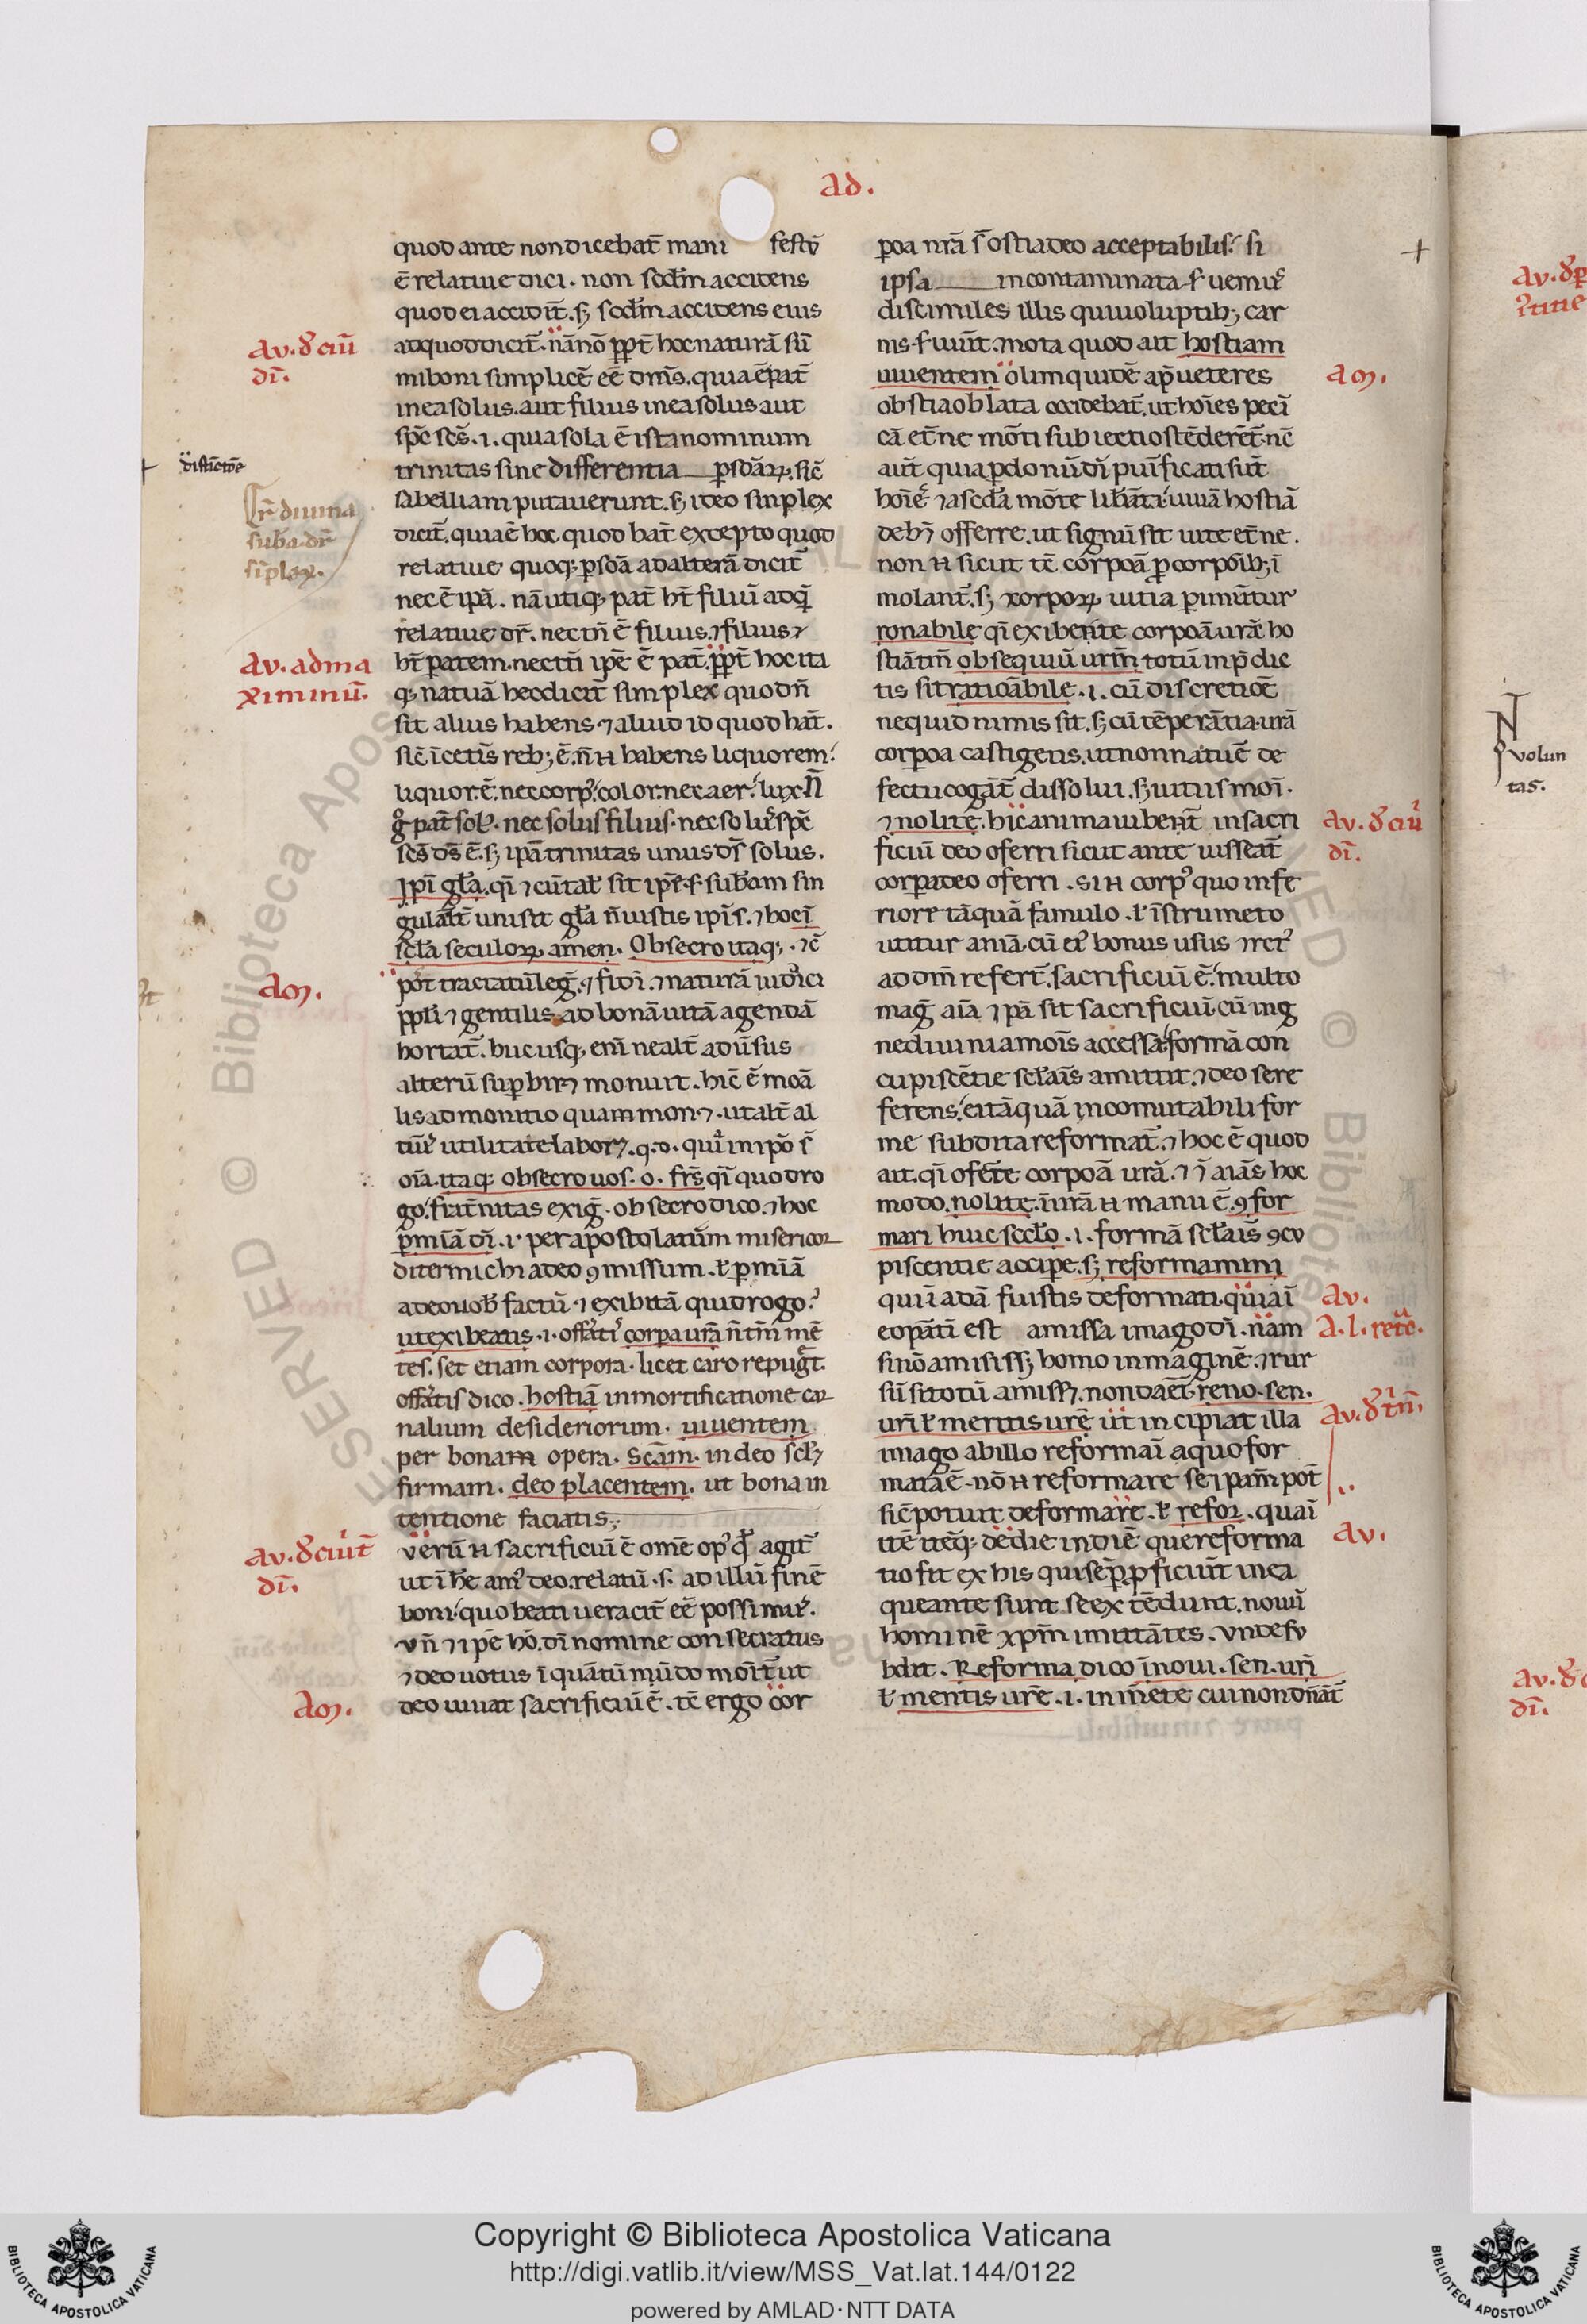 ad.
quod ante non dicebat̄ mani festū
ē relatiue dici. non scđm accidens
quod ei accidit̄. sꝫ scđm accidens eius
ad quod dicit̄. nā nō ꝓpt̄ hoc naturā sūmi
boni simplicē eē dīms. quia ē pat̄
in ea solus. aut filius in ea solus aut
spc̄ scs̄. i. quia sola ē ista nominum
trinitas sine differentia ꝑsōaꝝ. sic̄
sabelliani putauerunt. sꝫ ideo simplex
dicit̄. quia ē hoc quod hat̄ excepto quod
relatiue quoqꝫ ꝑsōa ad alterā dicit̄
nec ē ipā. nā utiqꝫ pat̄ ht̄ filiū ad q̄
relatiue dr̄. nec tn̄ ē filius. ⁊ filius
ht̄ patrem. nec tn̄ ip̄e ē pat̄. ꝓpt̄ hoc ita
qꝫ natuā hec dicit̄ simplex quod n̄
sit alius habens ⁊ aliud id quod hat̄.
sic̄ ī cetīs rebꝫ ē. n̄ habens liquorem
liquor ē. nec corpꝰ color. nec aer lux
g̊ pat̄ solꝰ. nec solus filius. nec solus spc̄
scs̄ ds̄ ē. sꝫ ipā trinitas unus ds̄ solus.
Ipī gl̄a. qī ⁊ cū tal̄ sit ipē sub̄am sin
gulat̄ uni sit gl̄a n̄ uistis ipīs. ⁊ hoc ī
scl̄a seculoꝝ amen. Obsecro itaqꝫ. ⁊c̄
pōt tractatū leḡ. ⁊ fidī. ⁊ naturā iudici
ppl̄i ⁊ gentilis ad bonā uitā agendā
hortat̄. huc usqꝫ em̄ ne alt̄ aduersus
alterū suꝑbiret monuit. hic ē moā
lis admonitio quam monꝫ. ut alt̄ al
tius utilitate laboret. q. d. quia in ipō s̄
oīa. itaqꝫ obsecro uos. o. frs̄ qī quod ro
go. frat̄nitas exiḡ. obsecro dico. ⁊ hoc
ꝑ mīā dī. i. per apostolatūm misericor
diter michi a deo ꝯmissum. ł ꝑ mīā
a deo uob̄ factū ⁊ exibitā quid rogo
ut exibeatis. i. offatis corpa urā n̄ tm̄ mē
tes. set etiam corpora. licet caro repugt̄.
offatis dico. hostiā in mortificatione car
nalium desideriorum. uiuentem
per bonam opera. Scām. in deo sclꝫ
firmam. deo placentem. ut bona in
tentione faciatis.
Verū sacrificiū ē omē opꝰ qđ agit̄
ut ī hēamꝰ deo. relatū. s. ad illū finē
boni quo beati ueracit̄ eē possimus.
vn̄ ⁊ ipē hō. dī nomine consecratus
⁊ deo uotus ī quātū mūdo morit̄ ut
deo uiuat sacrificiū ē. tē ergo cor
poa nrā s̄ ostia deo acceptabilis. si
ipsa incontaminata seruemus
discimiles illis qui uoluptibꝫ car
nis seruiūt. nota quod ait hostiam
uiuentem olim quidē ap̄ ueteres
obstia oblata occidebat̄. ut hoīes peccī
cā et̄ne mōti subiecti ostēderēt̄. nc̄
aut̄ quia ꝑ donū dī puificati sūt
hoīes ⁊ a scd̄a mōte lib̄ati. uiuā hostiā
debꝫ offerre. ut signū sit uite et̄ne.
non sicut tc̄ corꝑoā ꝑ corꝑoibꝫ ī
molant̄. sꝫ corporꝝ uitia ꝑimūtur
ronabile qī exibente corpoā urā ho
stiā tm̄ obsequiū urm̄ totū in p̄dic
tis sit ratioābile. i. cū discretioē
ne quid nimis sit. sꝫ cū tēperātia. urā
corꝑoa castigetis. ut non natuē de
fectu cogāt̄ dissolui. sꝫ uitus moī.
⁊ nolite. hic anima iubent̄ in sacri
ficiū deo oferri sicut ante iusseat̄
corꝑa deo oferri. Si corpꝰ quo infe
riore tāquā famulo. ł īstrumeto
utitur aniā. cū eiꝰ bonus usus ⁊ rcꝰ
ad dm̄ refert̄. sacrificiū ē. multo
maḡ aīa ⁊ ipā sit sacrificiū. cū ing
ne diuini amoīs accessa. formā con
cupiscētie scl̄aīs amittit. ⁊ deo se re
ferens. ei tāquā incomutabili for
me subdita reformat̄. ⁊ hoc ē quod
ait. qī oferte corpoā urā. ⁊ ī aiās hoc
modo. nolite. ī urā manu ē. ꝯfor
mari huic sclo. i. formā scl̄aīs ꝯcu
piscentie accipe. sꝫ reformamini
qui ī adā fuistis deformati. quia ī
eo pāti est amissa imago dī. nam
si nō amisissꝫ homo inmaginē. ⁊ rur
sū si totū amissꝫ. non dāet̄ reno. sen.
urī ł mentis urē ut incipiat illa
imago ab illo reformaī a quo for
mata ē. nō reformare seipam̄ pot̄
sic̄ potuit deformare. ł refor. quaī
itē iteqꝫ de die in diē que reforma
tio fit ex his qui sēp ꝓficiūt in ea
que ante sunt. se extēdunt. nouī
hominē xpm imitātes. vnde su
bdit. Reforma dico ī noui. sen. urī
ł mentis urē. i. in mente cui non dn̄at̄
av. đ ciū
dī.
distictoe
dr̄ diuina
suba. dr̄
sīplex.
av. ad ma
ximinū.
am.
av. đ ciuit̄
dī.
am.
am.
av. đ ciū
dī.
av.
a. l. retc̄.
av. đ tn̄.
av.
volun
tas.
av.
dī.
Copyright © Biblioteca Apostolica Vaticana
http://digi.vatlib.it/view/MSS_Vat.lat.144/0122
powered by AMLAD·NTT DATA
BIBLIOTECA APOSTOLICA VATICANA
BIBLIOTECA APOSTOLICA VATICANA